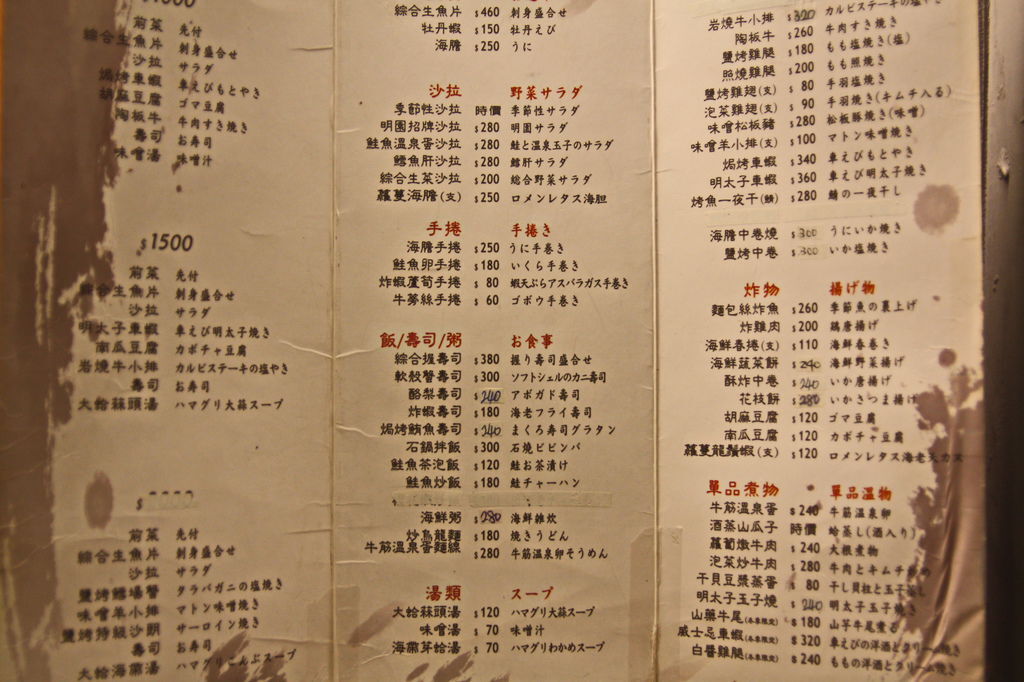 前菜 先付
綜合生魚片 刺身盛合せ
沙拉 サラダ
焗烤車蝦 車えびもとやき
胡麻豆腐 ゴマ豆腐
陶板牛 牛肉すき焼き
壽司 お寿司
味噌湯 味噌汁
$1500
前菜 先付
綜合生魚片 刺身盛合せ
沙拉 サラダ
明太子車蝦 車えび明太子焼き
南瓜豆腐 カボチャ豆腐
岩燒牛小排 カルビステーキの塩やき
壽司 お寿司
大蛤蒜頭湯 ハマグリ大蒜スープ
前菜 先付
綜合生魚片 刺身盛合せ
沙拉 サラダ
鹽烤鱈場蟹 タラバガニの塩焼き
味噌羊小排 マトン味噌焼き
鹽烤特級沙朗 サーロイン焼き
壽司 お寿司
大蛤海藻湯 ハマグリこんぶスープ
綜合生魚片 $460 刺身盛合せ
牡丹蝦 $150 牡丹えび
海膽 $250 うに
沙拉 野菜サラダ
季節性沙拉 時價 季節性サラダ
明園招牌沙拉 $280 明園サラダ
鮭魚溫泉蛋沙拉 $280 鮭と温泉玉子のサラダ
鱈魚肝沙拉 $280 鱈肝サラダ
綜合生菜沙拉 $200 総合野菜サラダ
蘿蔓海膽(支) $250 ロメンレタス海胆
手捲 手捲き
海膽手捲 $250 うに手巻き
鮭魚卵手捲 $180 いくら手巻き
炸蝦蘆筍手捲 $80 蝦天ぷらアスパラガス手巻き
牛蒡絲手捲 $60 ゴボウ手巻き
飯/壽司/粥 お食事
綜合握壽司 $380 握り寿司盛合せ
軟殼蟹壽司 $300 ソフトシェルのカニ寿司
酪梨壽司 $240 アボガド寿司
炸蝦壽司 $180 海老フライ寿司
焗烤鮪魚壽司 $240 まぐろ寿司グラタン
石鍋拌飯 $300 石焼ビビンバ
鮭魚茶泡飯 $120 鮭お茶漬け
鮭魚炒飯 $180 鮭チャーハン
海鮮粥 $280 海鮮雑炊
炒烏龍麵 $180 焼きうどん
牛筋溫泉蛋麵線 $280 牛筋温泉卵そうめん
湯類 スープ
大蛤蒜頭湯 $120 ハマグリ大蒜スープ
味噌湯 $70 味噌汁
海藻芽蛤湯 $70 ハマグリわかめスープ
岩燒牛小排 $320 カルビステーキの塩やき
陶板牛 $260 牛肉すき焼き
鹽燒雞腿 $180 もも塩焼き(塩)
照燒雞腿 $200 もも照焼き
鹽烤雞翅(支) $80 手羽塩焼き
泡菜雞翅(支) $90 手羽焼き(キムチ入る)
味噌松板豬 $280 松板豚焼き(味噌)
味噌羊小排(支) $100 マトン味噌焼き
焗烤車蝦 $340 車えびもとやき
明太子車蝦 $360 車えび明太子焼き
烤魚一夜干(鯖) $280 鯖の一夜干し
海膽中卷燒 $300 うにいか焼き
鹽烤中卷 $300 いか塩焼き
炸物 揚げ物
麵包絲炸魚 $260 季節魚の裏上げ
炸雞肉 $200 鶏唐揚げ
海鮮春捲(支) $110 海鮮春巻き
海鮮蔬菜餅 $240 海鮮野菜揚げ
酥炸中卷 $240 いか唐揚げ
花枝餅 $280 いかさつま揚げ
胡麻豆腐 $120 ゴマ豆腐
南瓜豆腐 $120 カボチャ豆腐
蘿蔓龍鬚蝦(支) $120 ロメンレタス海老天カス
單品煮物 單品溫物
牛筋溫泉蛋 $240 牛筋温泉卵
酒蒸山瓜子 時價 蛤蒸し(酒入り)
蘿蔔燉牛肉 $240 大根煮物
泡菜炒牛肉 $280 牛肉とキムチ炒め
干貝豆漿蒸蛋 $80 干し貝柱と玉子蒸し
明太子玉子燒 $240 明太子玉子焼き
山藥牛尾(本季限定) $180 山芋牛尾煮る
威士忌車蝦(本季限定) $320 車えびの洋酒とクリーム焼き
白醬雞腿(本季限定) $240 ももの洋酒とクリーム焼き